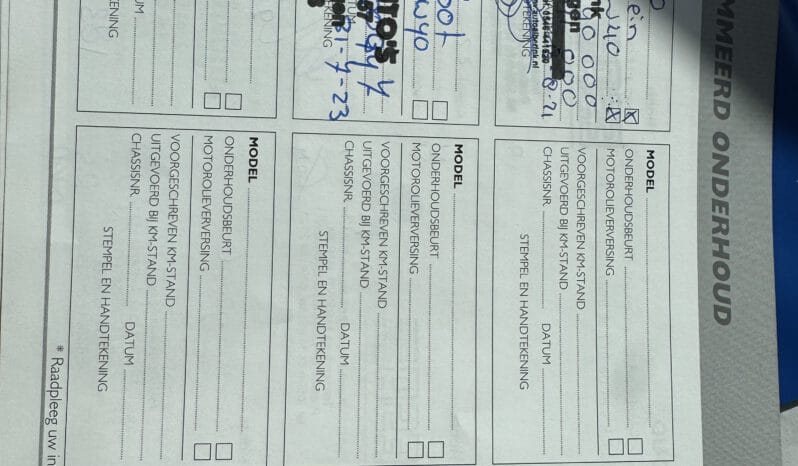 MMEERD ONDERHOUD
MODEL
ONDERHOUDSBEURT
MOTOROLIEVERVERSING
VOORGESCHREVEN KM-STAND
UITGEVOERD BIJ KM-STAND
CHASSISNR. DATUM
STEMPEL EN HANDTEKENING
MODEL
ONDERHOUDSBEURT
MOTOROLIEVERVERSING
VOORGESCHREVEN KM-STAND
UITGEVOERD BIJ KM-STAND
CHASSISNR. DATUM
STEMPEL EN HANDTEKENING
MODEL
ONDERHOUDSBEURT
MOTOROLIEVERVERSING
VOORGESCHREVEN KM-STAND
UITGEVOERD BIJ KM-STAND
CHASSISNR. DATUM
STEMPEL EN HANDTEKENING
W40
0 000
000
8-21
TEKENING
W40
UTO'S
31-7-23
TEKENING
UM
TEKENING
* Raadpleeg uw in